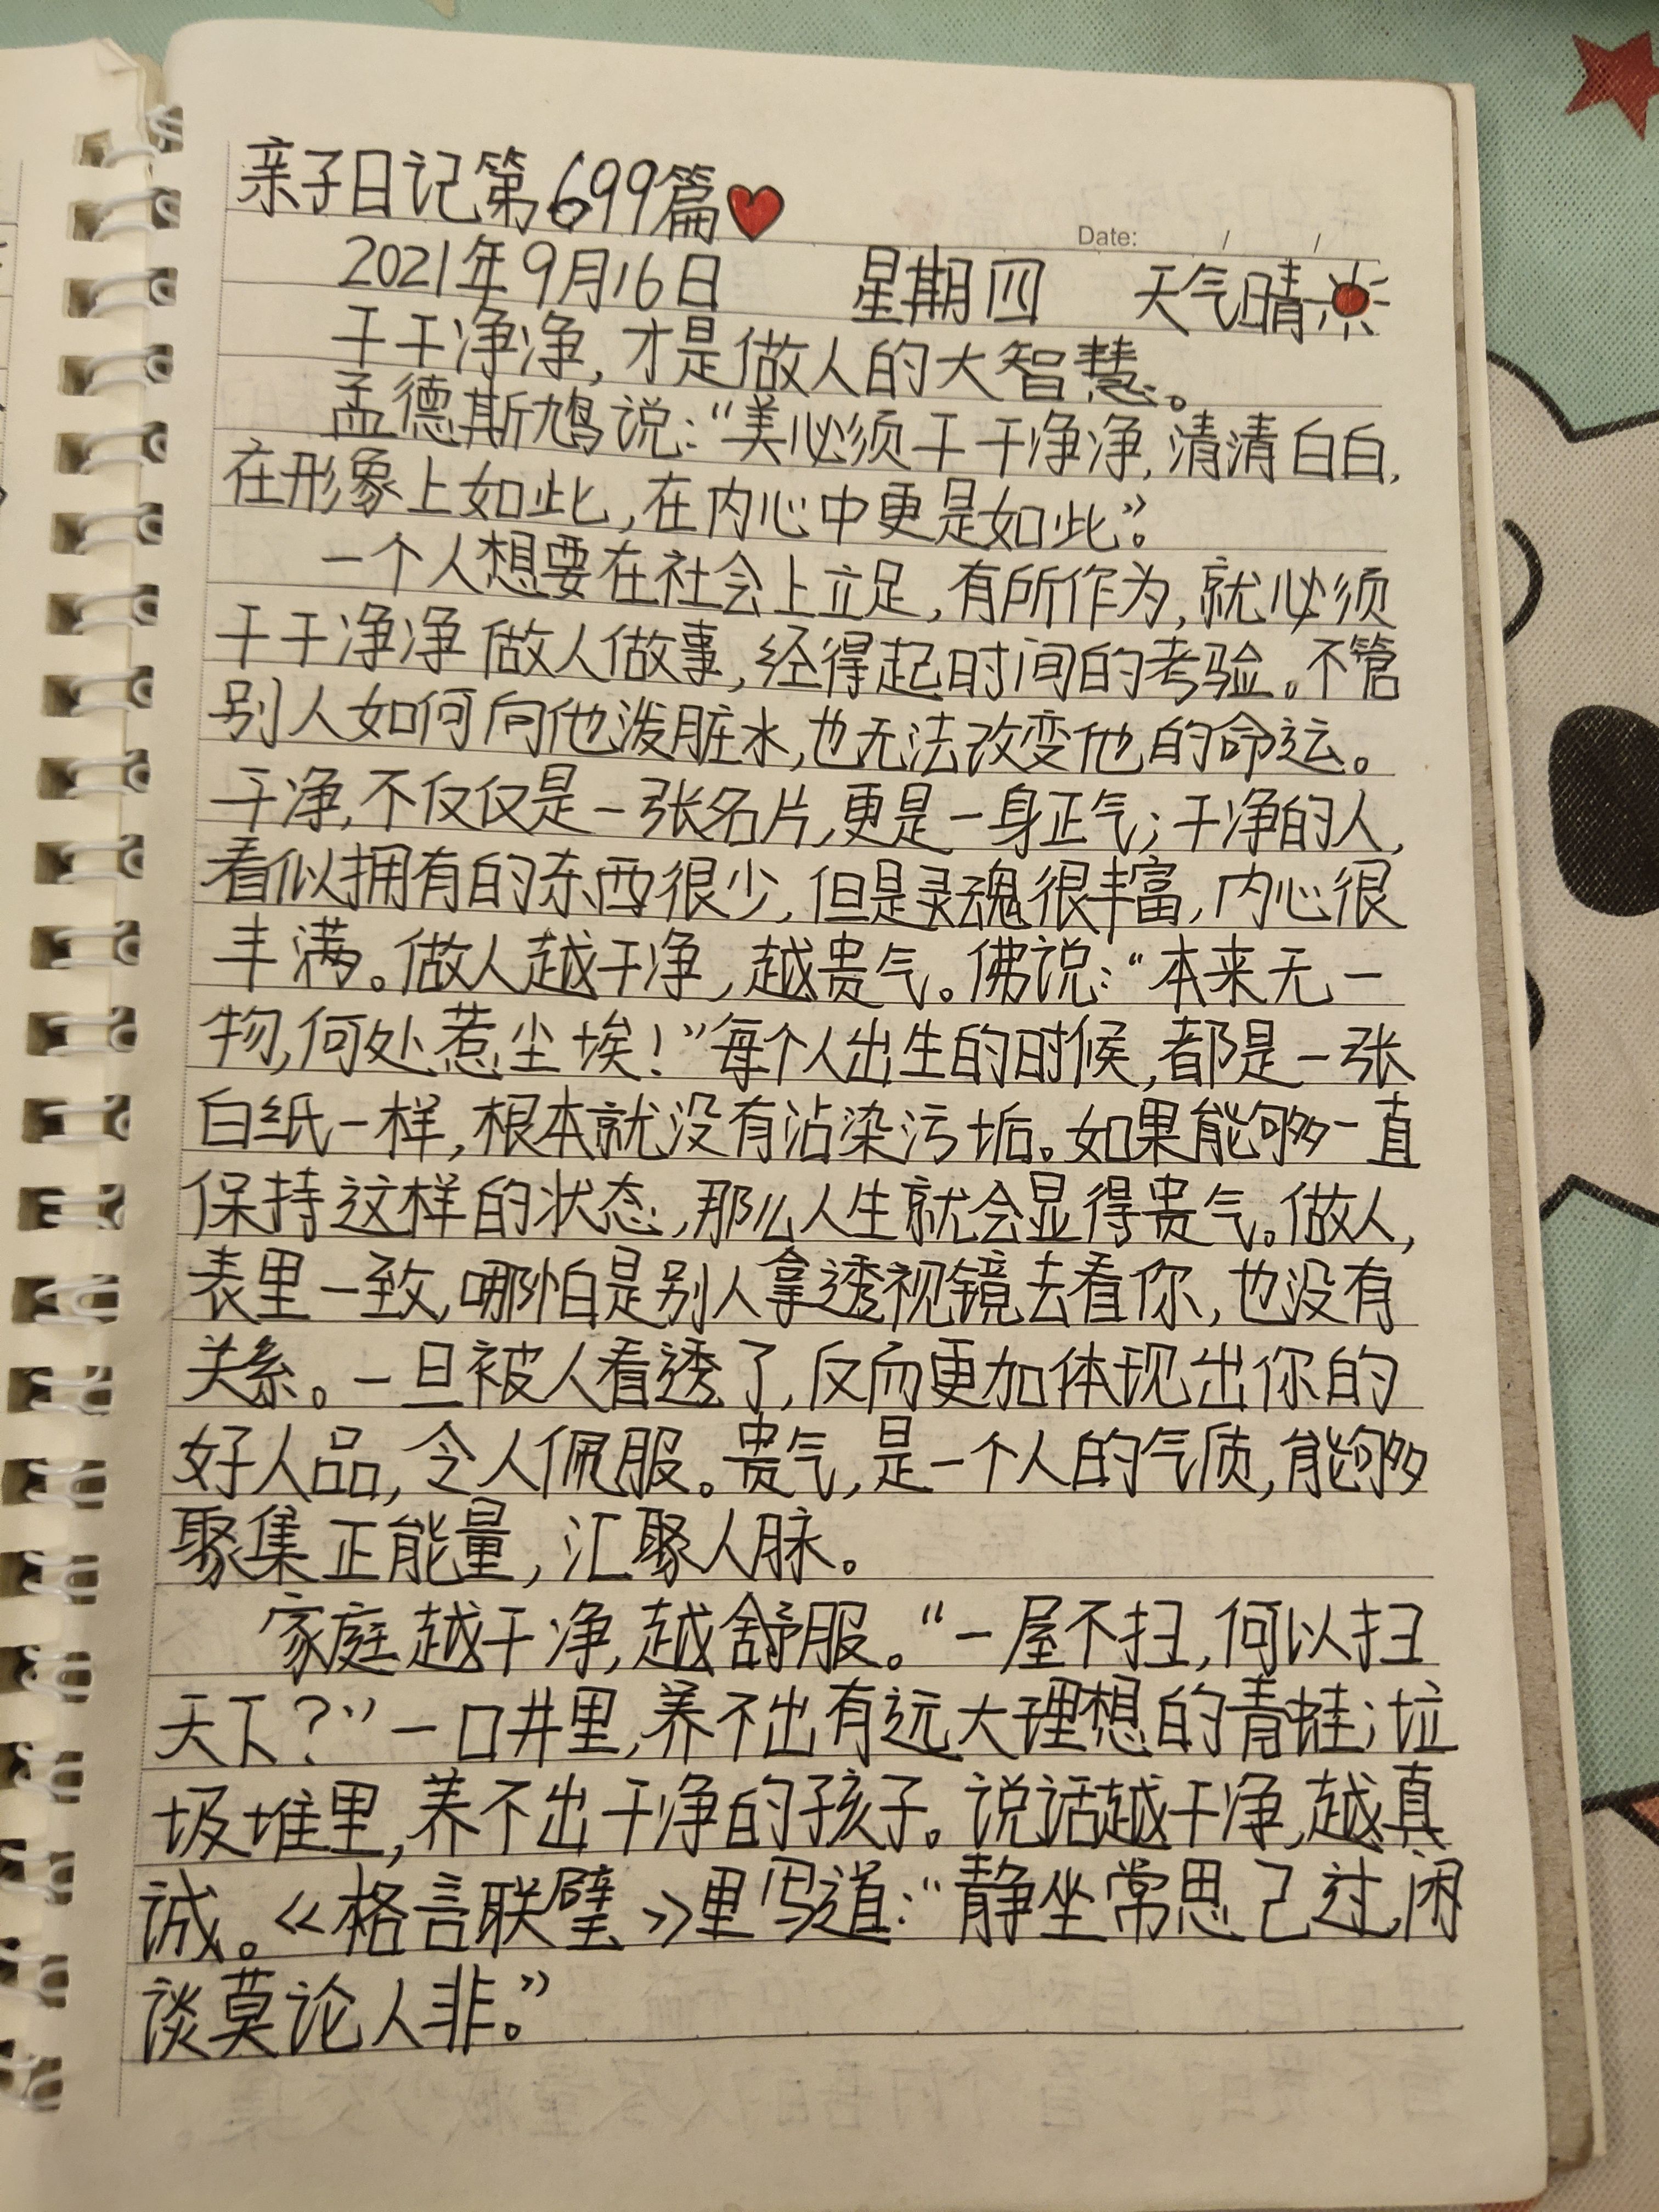 亲子日记第699篇
Date: / /
2021年9月16日 星期四 天气晴
干干净净,才是做人的大智慧。
孟德斯鸠说:“美必须干干净净,清清白白,
在形象上如此,在内心中更是如此”。
一个人想要在社会上立足,有所作为,就必须
干干净净做人做事,经得起时间的考验。不管
别人如何向他泼脏水,也无法改变他的命运。
干净,不仅仅是一张名片,更是一身正气;干净的人,
看似拥有的东西很少,但是灵魂很丰富,内心很
丰满。做人越干净,越贵气。佛说:“本来无一
物,何处惹尘埃!”每个人出生的时候,都是一张
白纸一样,根本就没有沾染污垢。如果能够一直
保持这样的状态,那么人生就会显得贵气。做人,
表里一致,哪怕是别人拿透视镜去看你,也没有
关系。一旦被人看透了,反而更加体现出你的
好人品,令人佩服。贵气,是一个人的气质,能够
聚集正能量,汇聚人脉。
家庭越干净,越舒服。“一屋不扫,何以扫
天下?”一口井里,养不出有远大理想的青蛙;垃
圾堆里,养不出干净的孩子。说话越干净,越真
诚。《格言联璧》里写道:“静坐常思己过,闲
谈莫论人非。”